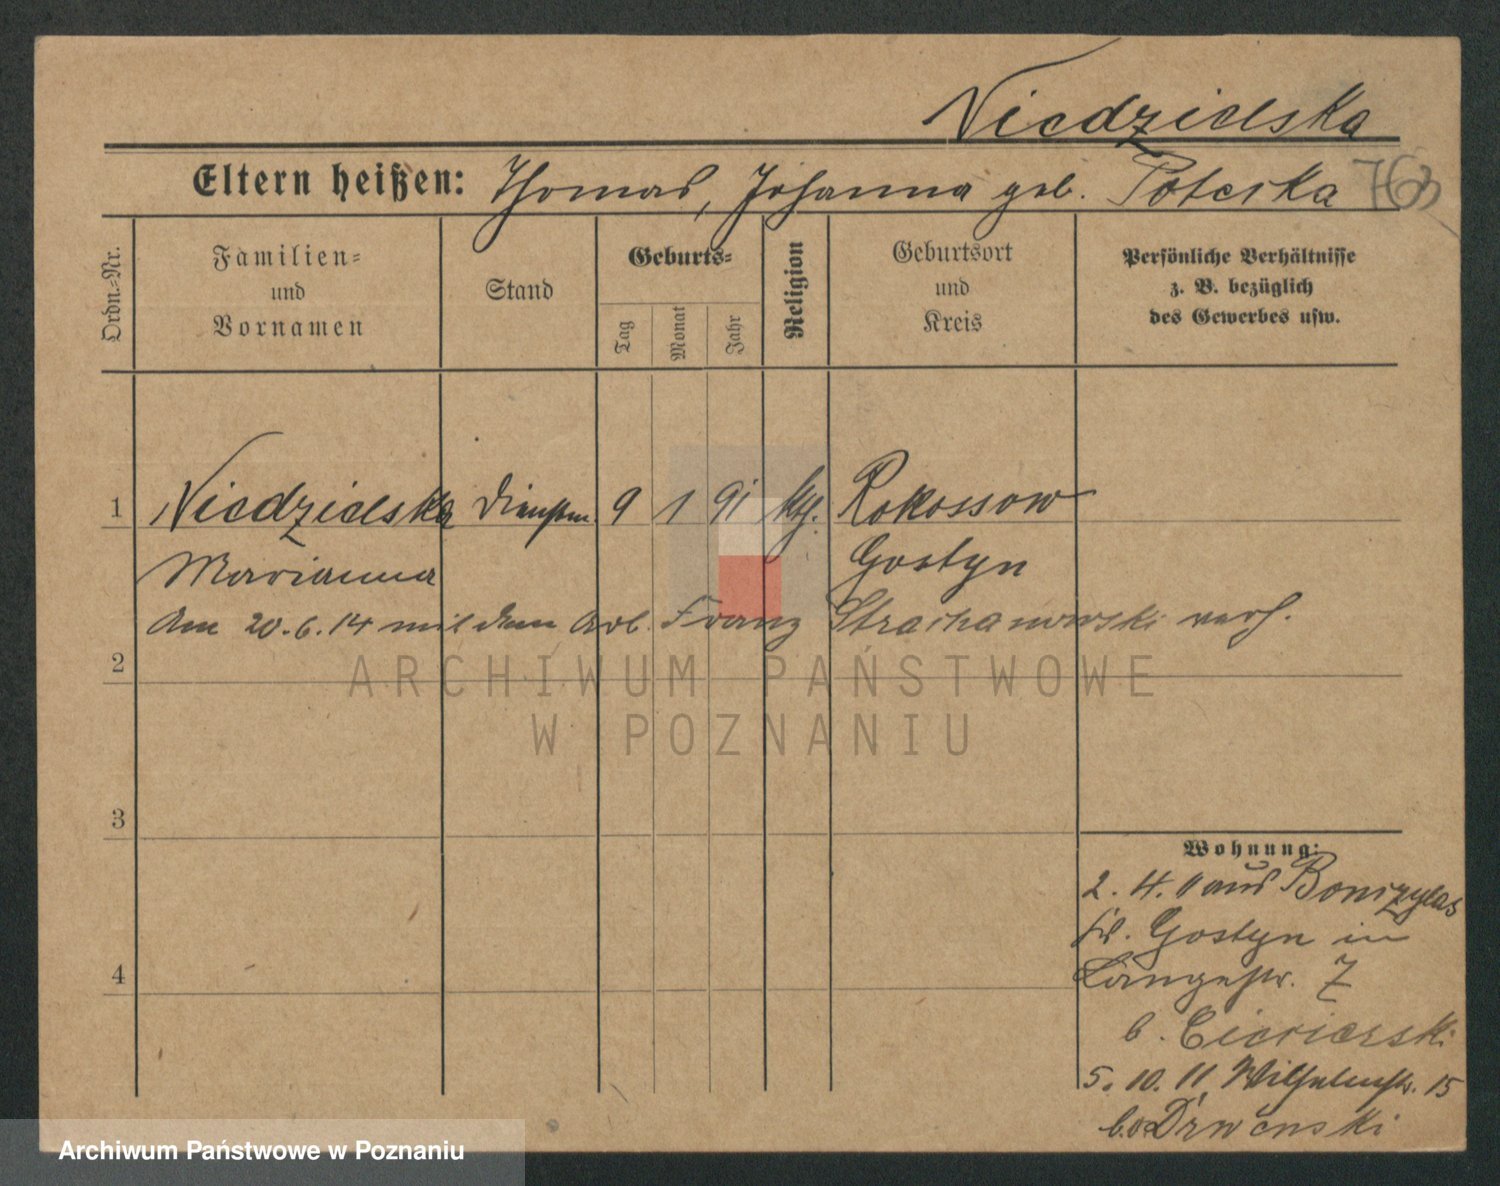 Niedzielska
Eltern heißen: Thomas, Johanna geb. Poterska 763
Ordn.-Nr.
Familien=
und
Vornamen
Stand
Geburts=
Tag
Monat
Jahr
Religion
Geburtsort
und
Kreis
Persönliche Verhältnisse
z. B. bezüglich
des Gewerbes usw.
1 Niedzielska Dienstm. 9 1 91 kth. Rokossow
Marianna Gostyn
Am 20.6.14 mit dem Arb. Franz Strachanowski verh.
2
ARCHIWUM PAŃSTWOWE
W POZNANIU
3
Wohnung:
2. 4. 11 aus
Kr. Gostyn in
Langestr. 7
b.
4
5. 10. 11 Wilhelmstr. 15
Drwenski
Archiwum Państwowe w Poznaniu